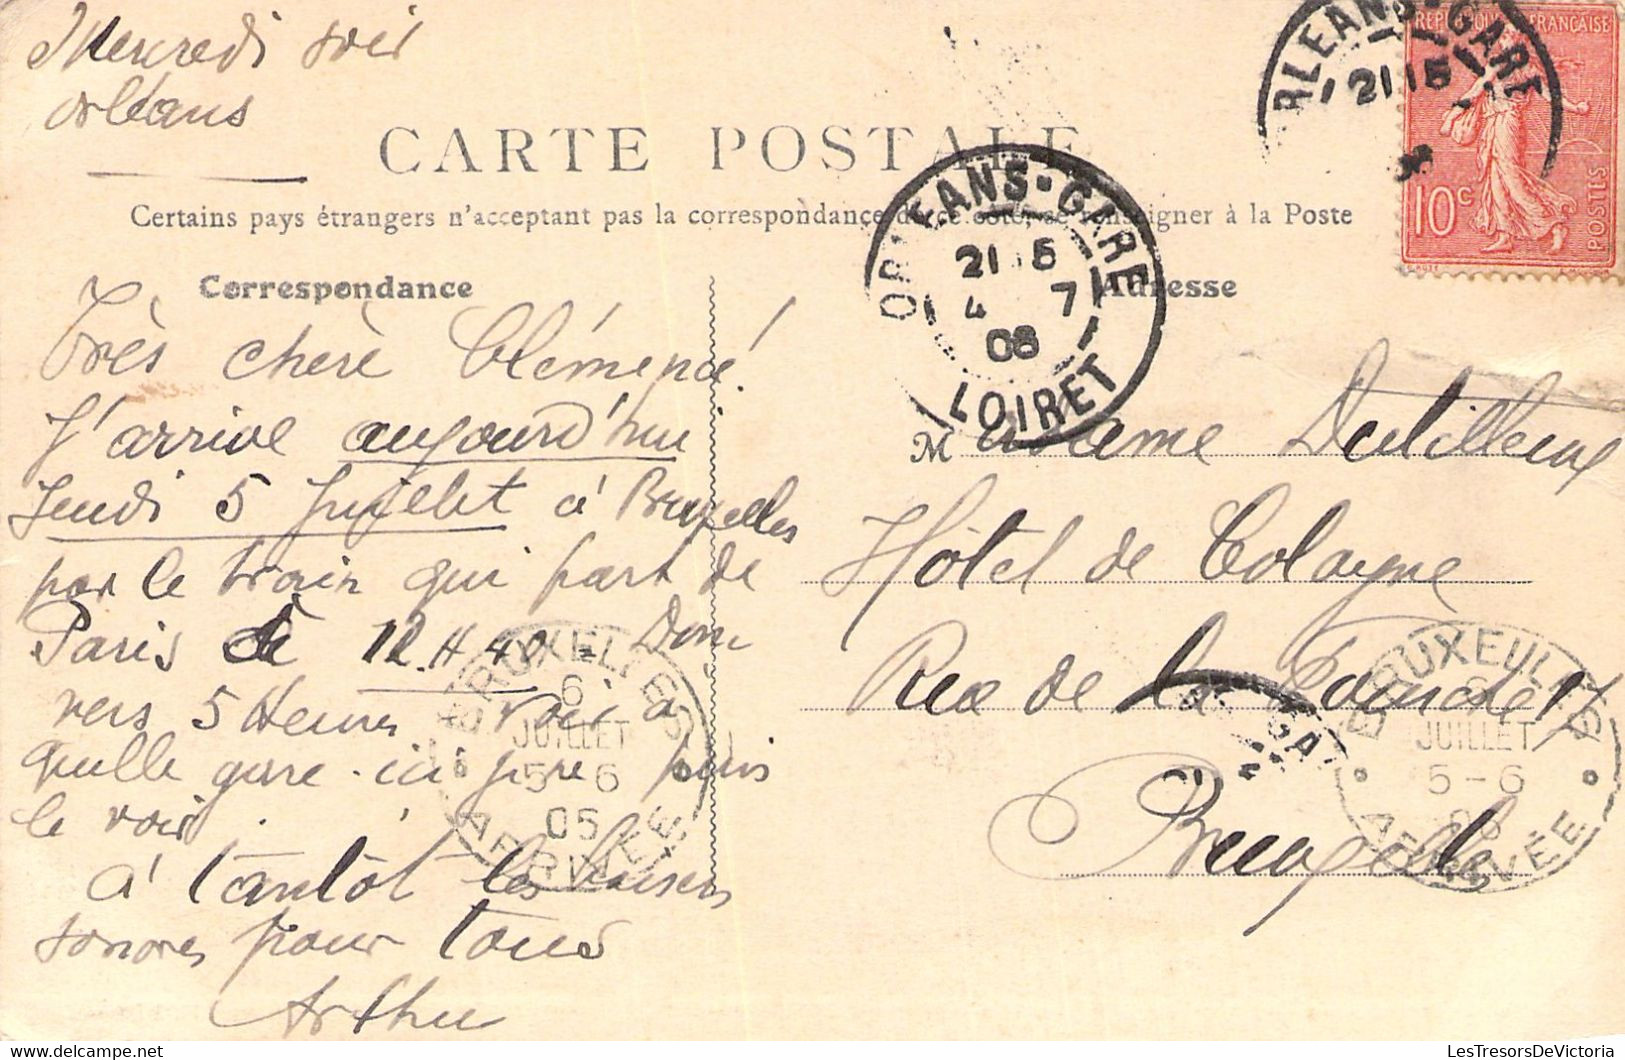 Mercredi soir
Orléans
CARTE POSTALE
Certains pays étrangers n'acceptent pas la correspondance de ce côté, se renseigner à la Poste
Correspondance
Adresse
Très chère Clémence!
J'arrive aujourd'hui
Jeudi 5 Juillet à Bruxelles
par le train qui part de
Paris à 12 H 40 - Donc
vers 5 Heures voir à
quelle gare. ici je ne puis
le voir.
à tantôt les baisers
sonores pour tous
Arthur
Madame Dutilleux
Hôtel de Cologne
Rue de la
Bruxelles
ORLEANS-GARE
21 15
REPUBLIQUE FRANÇAISE
10c
POSTES
ORLEANS-GARE
21 15
4 7
06
LOIRET
BRUXELLES
6
JUILLET
5-6
06
ARRIVÉE
BRUXELLES
6
JUILLET
5-6
06
ARRIVÉE
GA
delcampe.net
LesTresorsDeVictoria